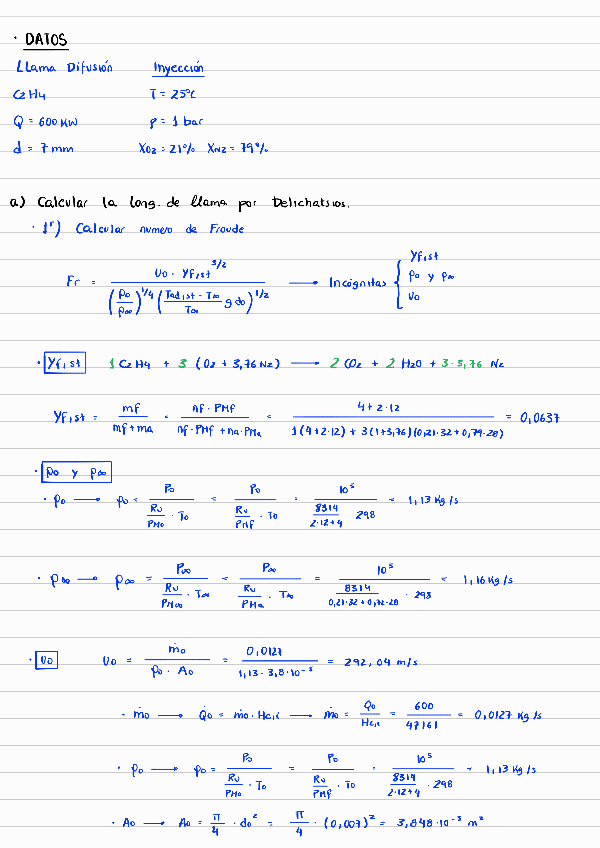 · DATOS
Llama Difusión Inyección
C2H4 T = 25ºC
Q = 600 KW p = 1 bar
d = 7 mm XO2 = 21% XN2 = 79%
a) Calcular la long. de llama por Delichatsios.
· 1º) Calcular numero de Froude
Fr = U0 · Yf,st^3/2 / ((ρ0/ρ∞)^1/4 (Tad,st - T∞/T∞ g d0)^1/2) → Incógnitas { Yf,st
ρ0 y ρ∞
U0
· Yf,st 1 C2H4 + 3 (O2 + 3,76 N2) → 2 CO2 + 2 H2O + 3·3,76 N2
Yf,st = mf / mf+ma = nf · PMf / nf·PMf + na·PMa = 4+2·12 / 1(4+2·12) + 3(1+3,76)(0,21·32+0,79·28) = 0,0637
· ρ0 y ρ∞
· ρ0 → ρ0 = P0 / (Ru/PM0 · T0) = P0 / (Ru/PMf · T0) = 10^5 / (8314/2·12+4 · 298) = 1,13 Kg/s
· ρ∞ → ρ∞ = P∞ / (Ru/PM∞ · T∞) = P∞ / (Ru/PMa · T∞) = 10^5 / (8314/0,21·32+0,79·28 · 298) = 1,16 Kg/s
· U0 U0 = ṁ0 / ρ0 · A0 = 0,0127 / 1,13 · 3,8·10^-5 = 292,04 m/s
· ṁ0 → Q̇0 = ṁ0 · Hc,i → ṁ0 = Q̇0 / Hc,i = 600 / 47161 = 0,0127 Kg/s
· ρ0 → ρ0 = P0 / (Ru/PM0 · T0) = P0 / (Ru/PMf · T0) = 10^5 / (8314/2·12+4 · 298) = 1,13 Kg/s
· A0 → A0 = π/4 · d0² = π/4 · (0,007)² = 3,848·10^-5 m²